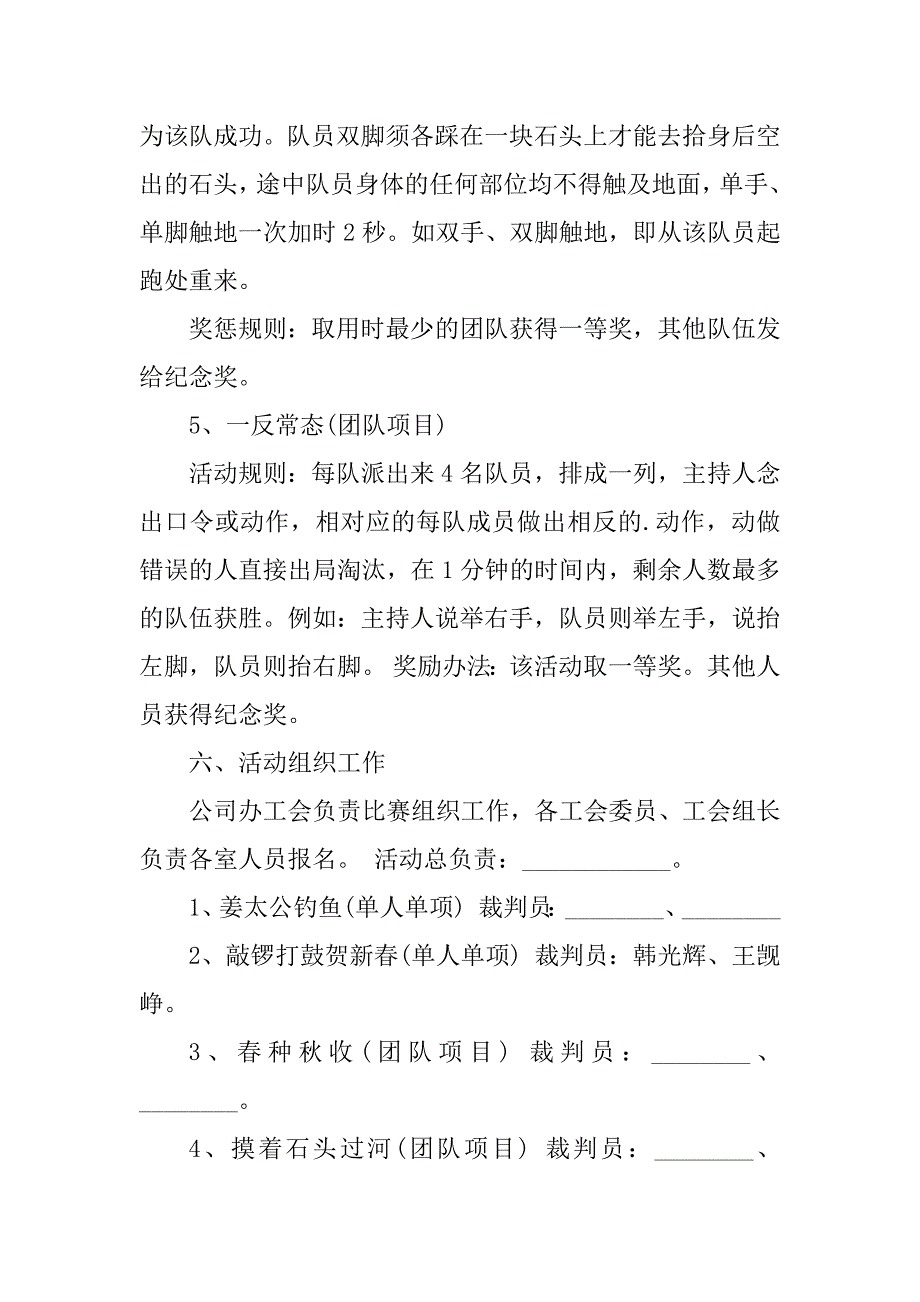 为该队成功。队员双脚须各踩在一块石头上才能去拾身后空
出的石头，途中队员身体的任何部位均不得触及地面，单手、
单脚触地一次加时 2 秒。如双手、双脚触地，即从该队员起
跑处重来。
奖惩规则：取用时最少的团队获得一等奖，其他队伍发
给纪念奖。
5、一反常态(团队项目)
活动规则：每队派出来 4 名队员，排成一列，主持人念
出口令或动作，相对应的每队成员做出相反的.动作，动做
错误的人直接出局淘汰，在 1 分钟的时间内，剩余人数最多
的队伍获胜。例如：主持人说举右手，队员则举左手，说抬
左脚，队员则抬右脚。 奖励办法：该活动取一等奖。其他人
员获得纪念奖。
六、活动组织工作
公司办工会负责比赛组织工作，各工会委员、工会组长
负责各室人员报名。 活动总负责：____________。
1、姜太公钓鱼(单人单项) 裁判员：________、________
2、敲锣打鼓贺新春(单人单项) 裁判员：韩光辉、王觊
峥。
3、春种秋收(团队项目) 裁判员：________、
________。
4、摸着石头过河(团队项目) 裁判员：________、